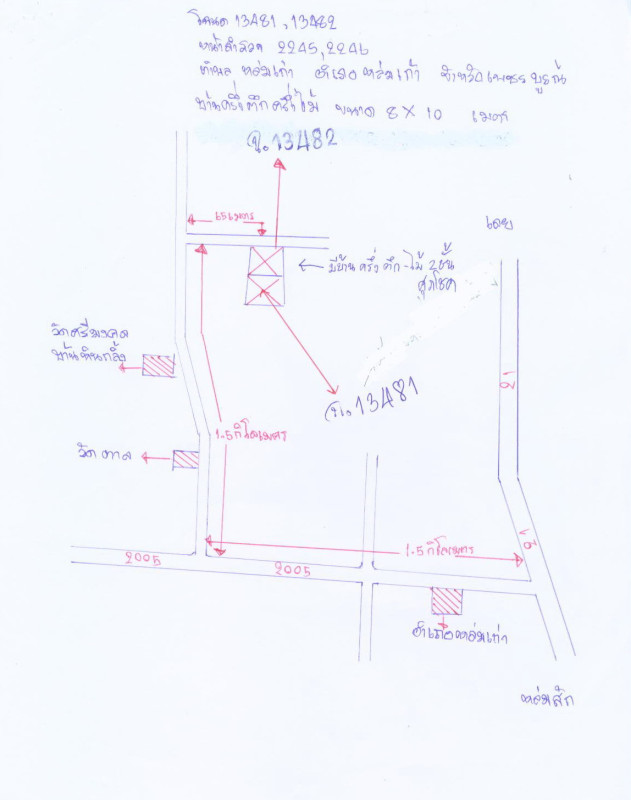 โฉนด 13481, 13482
หน้าสำรวจ 2245, 2246
ตำบล หล่มเก่า อำเภอ หล่มเก้า จังหวัดเพชรบูรณ์
บ้านครึ่งตึกครึ่งไม้ ขนาด 8 X 10 เมตร
ฉ.13482
65 เมตร
เลย
มีบ้านครึ่งตึก-ไม้ 2 ชั้น
วัดศรีมงคล
บ้านหินกลิ้ง
21
ฉ.13481
1.5 กิโลเมตร
วัดตาล
21
1.5 กิโลเมตร
2005
2005
อำเภอหล่มเก่า
หล่มสัก